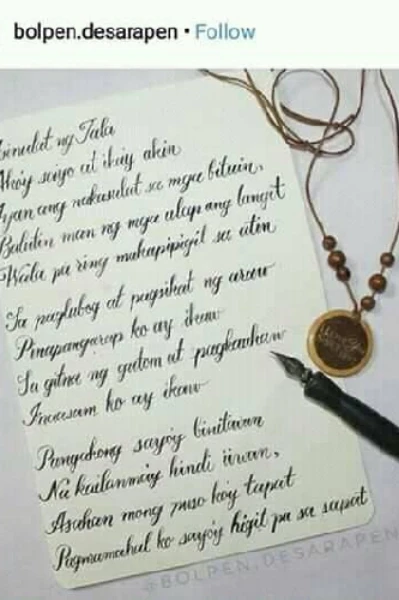 bolpen.desarapen • Follow
Sinulat ng Tala
Ako'y sayo at ika'y akin
Iyan ang nakasulat sa mga bituin,
Balutin man ng mga ulap ang langit
Wala pa ring makapipigil sa atin
Sa paglubog at pagsikat ng araw
Pinapangarap ko ay ikaw
Sa gitna ng gutom at pagkauhaw
Inaasam ko ay ikaw
Pangakong sayo'y binitawan
Na kailanma'y hindi iiwan,
Asahan mong puso ko'y tapat
Pagmamahal ko sayo'y higit pa sa sapat
@BOLPEN.DESARAPEN